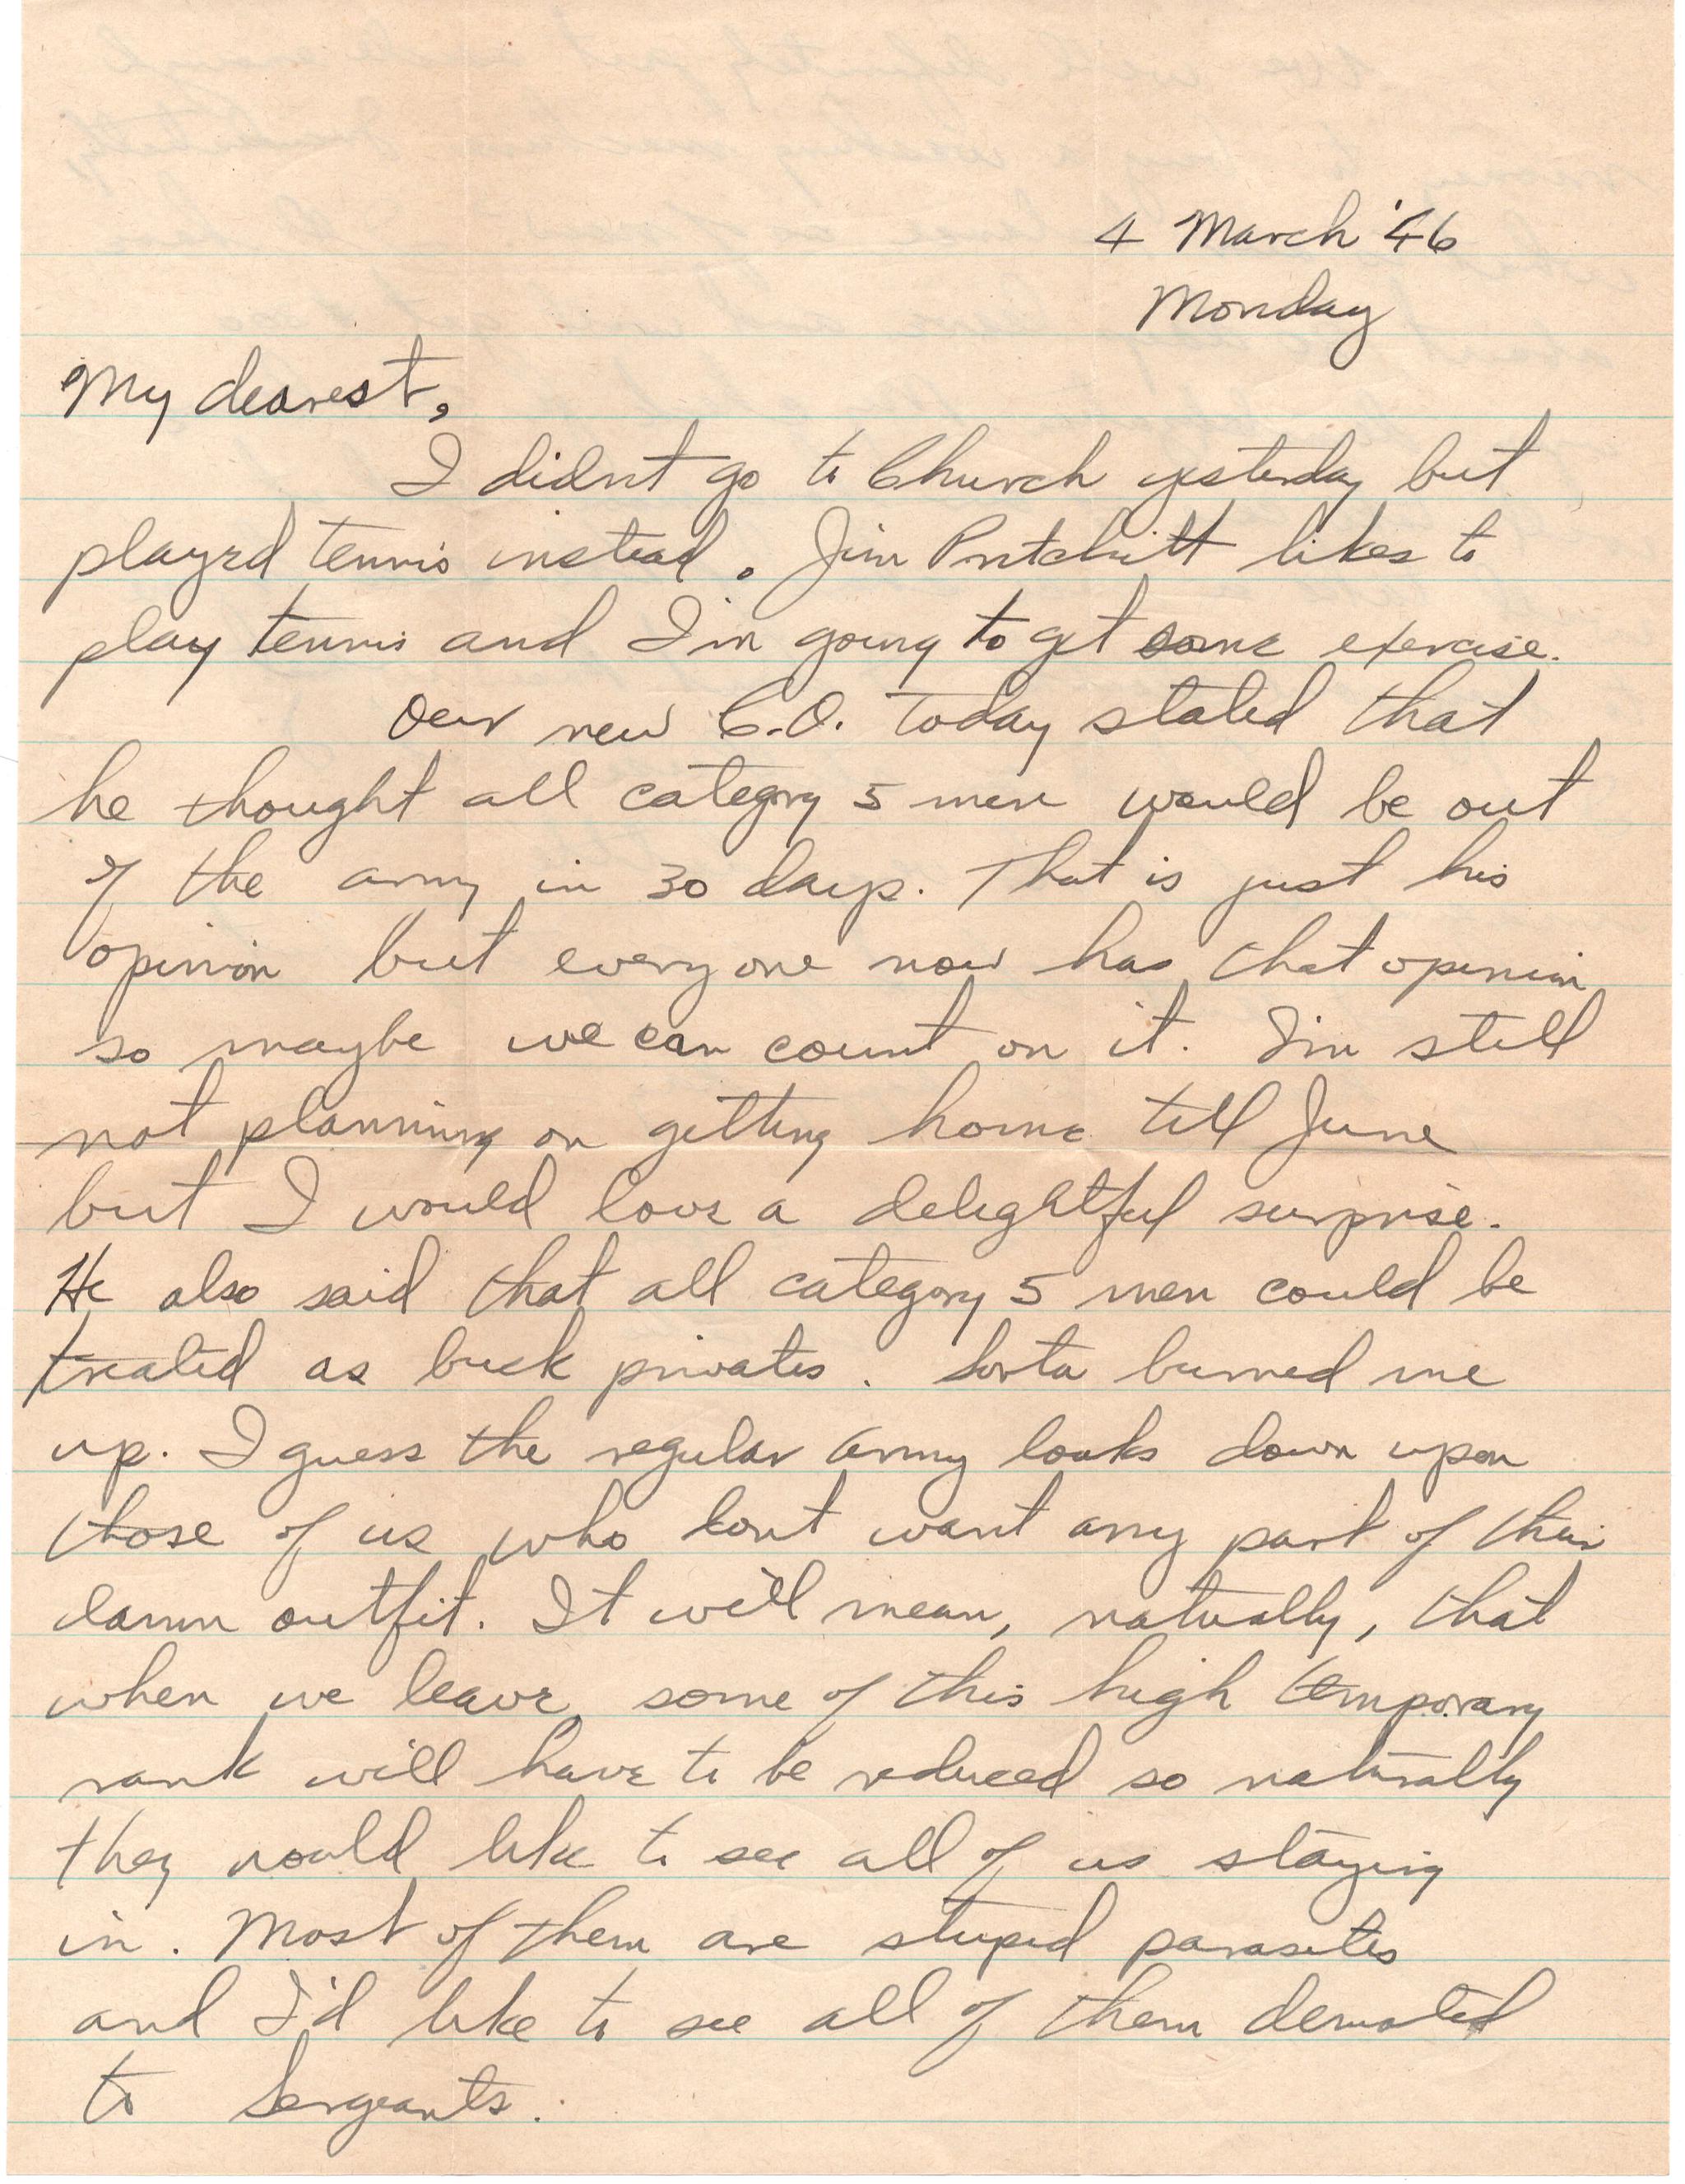 4 March '46
Monday
My dearest,
I didn't go to Church yesterday but
played tennis instead. Jim Pritchitt likes to
play tennis and I'm going to get some exercise.
Our new C.O. today stated that
he thought all category 5 men would be out
of the army in 30 days. That is just his
opinion but everyone now has that opinion
so maybe we can count on it. I'm still
not planning on getting home till June
but I would love a delightful surprise.
He also said that all category 5 men could be
treated as buck privates. Sorta burned me
up. I guess the regular army looks down upon
those of us who dont want any part of their
damn outfit. It will mean, naturally, that
when we leave some of this high temporary
rank will have to be reduced so naturally
they would like to see all of us staying
in. Most of them are stupid parasites
and I'd like to see all of them demoted
to Sergeants.